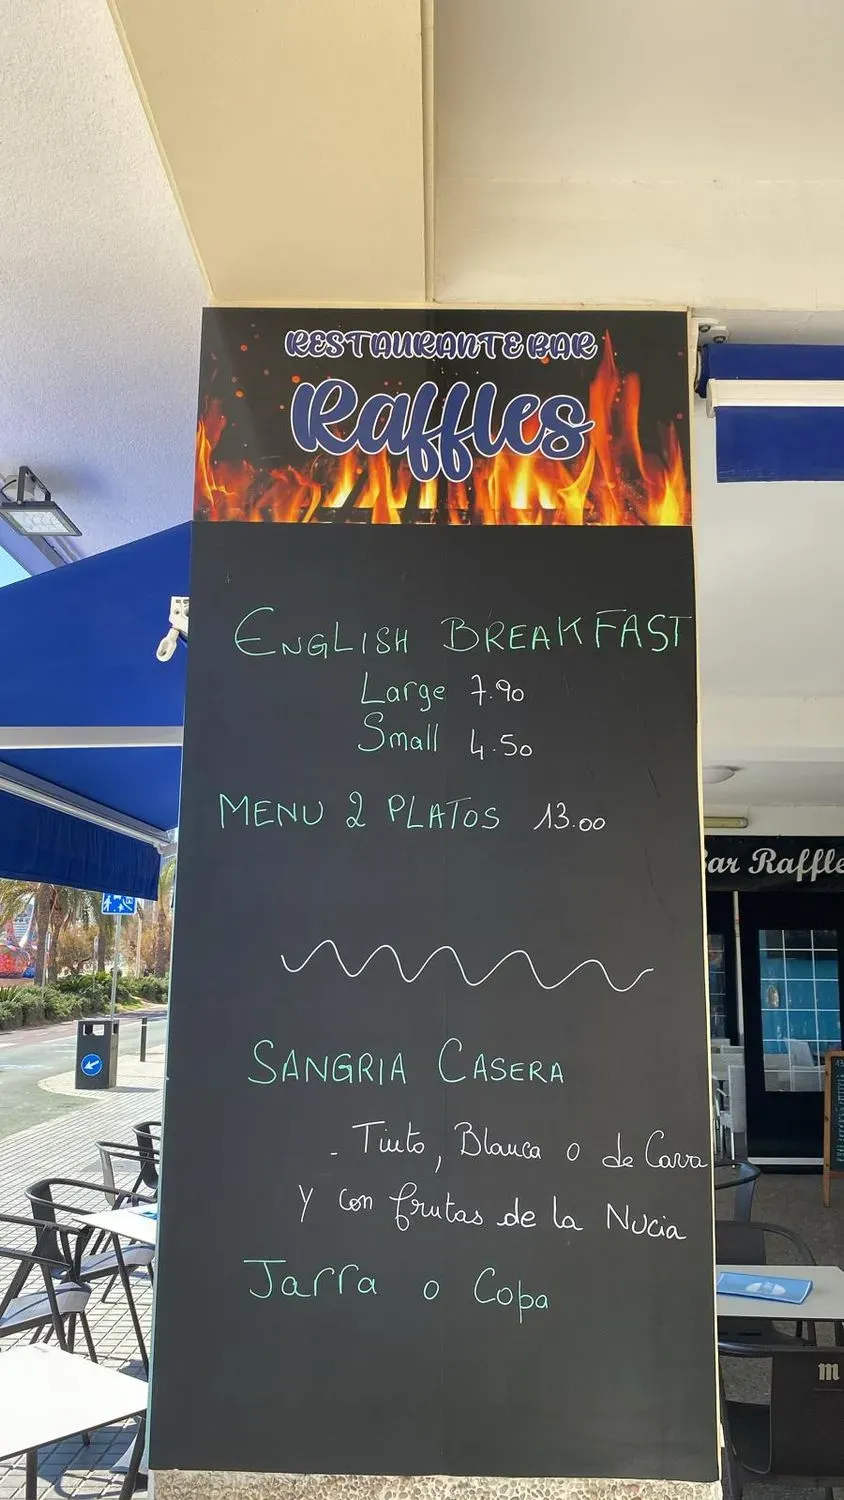 RESTAURANTE BAR
Raffles
ENGLISH BREAKFAST
Large 7.90
Small 4.50
MENU 2 PLATOS 13.00
SANGRIA CASERA
- Tinto, Blanca o de Cava
Y con frutas de la Nucia
Jarra o Copa
Bar Raffle
m